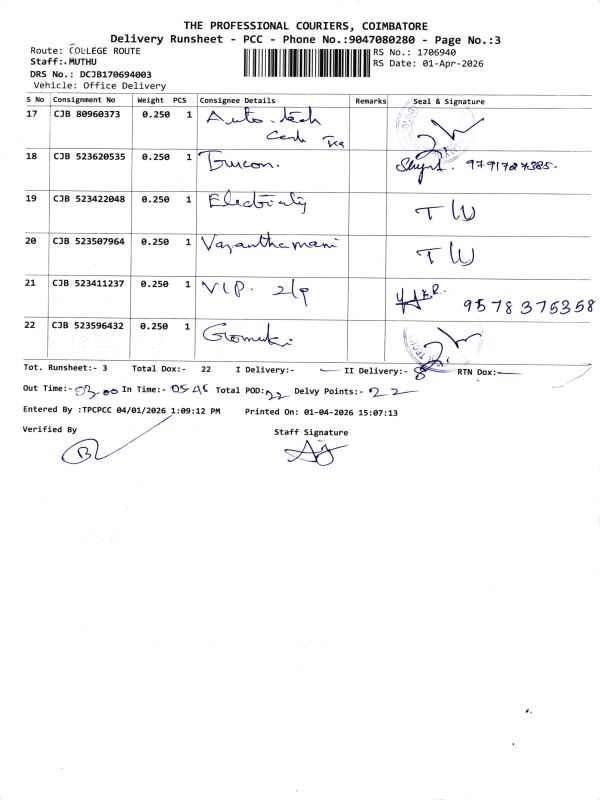 THE PROFESSIONAL COURIERS, COIMBATORE
Delivery Runsheet - PCC - Phone No.:9047080280 - Page No.:3
Route: COLLEGE ROUTE
RS No.: 1706940
Staff: MUTHU
RS Date: 01-Apr-2026
DRS No.: DCJB170694003
Vehicle: Office Delivery
S No Consignment No Weight PCS Consignee Details Remarks Seal & Signature
17 CJB 80960373 0.250 1 Auto tech
18 CJB 523620535 0.250 1 9791727385.
19 CJB 523422048 0.250 1 TW
20 CJB 523507964 0.250 1 Vasanthamani TW
21 CJB 523411237 0.250 1 VIP. 9578375358
22 CJB 523596432 0.250 1 Gomuki
Tot. Runsheet:- 3 Total Dox:- 22 I Delivery:- II Delivery:- 8 RTN Dox:-
Out Time:- 03.00 In Time:- 05-45 Total POD: 22 Delvy Points:- 22
Entered By :TPCPCC 04/01/2026 1:09:12 PM Printed On: 01-04-2026 15:07:13
Verified By Staff Signature